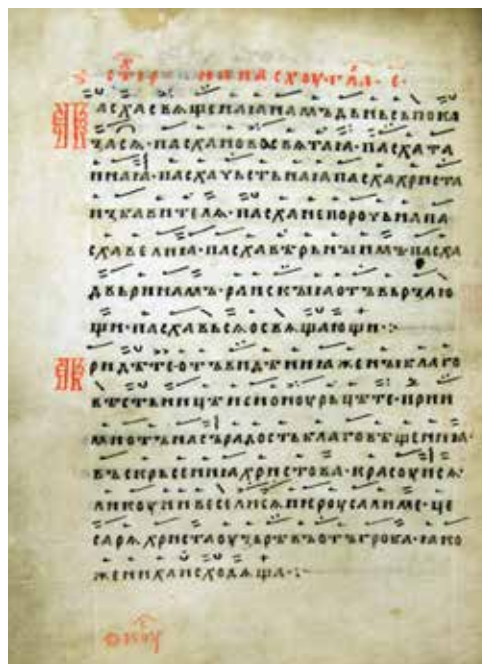 стїх на пасхоу глⷶ· е·
пасхасвѧщенаꙗнамъдьньсьпока
засѧ·пасхановосвѧтаꙗ·пасхата
инаꙗ·пасхачьстьнаꙗпасхахриста
избавителѧ·пасханепорочьнапа
схавелиꙗ·пасхавѣрьныимъ·пасха
двьринамъ·раискыꙗотъвьрзаю
щи·пасхавьсѧосвѧщающи·:·
придѣте·отъвидѣниꙗженыблаго
вѣстьницѣисионоурьцѣте·прии
миотънасърадостьблаговѣщениꙗ·
въскрьсениꙗхристова·красоуисѧ·
ликоуиивеселисѧиероусалиме·це
сарѧхристаоузьрѣвъотъгроба·ꙗко
женихаисходѧща·:·